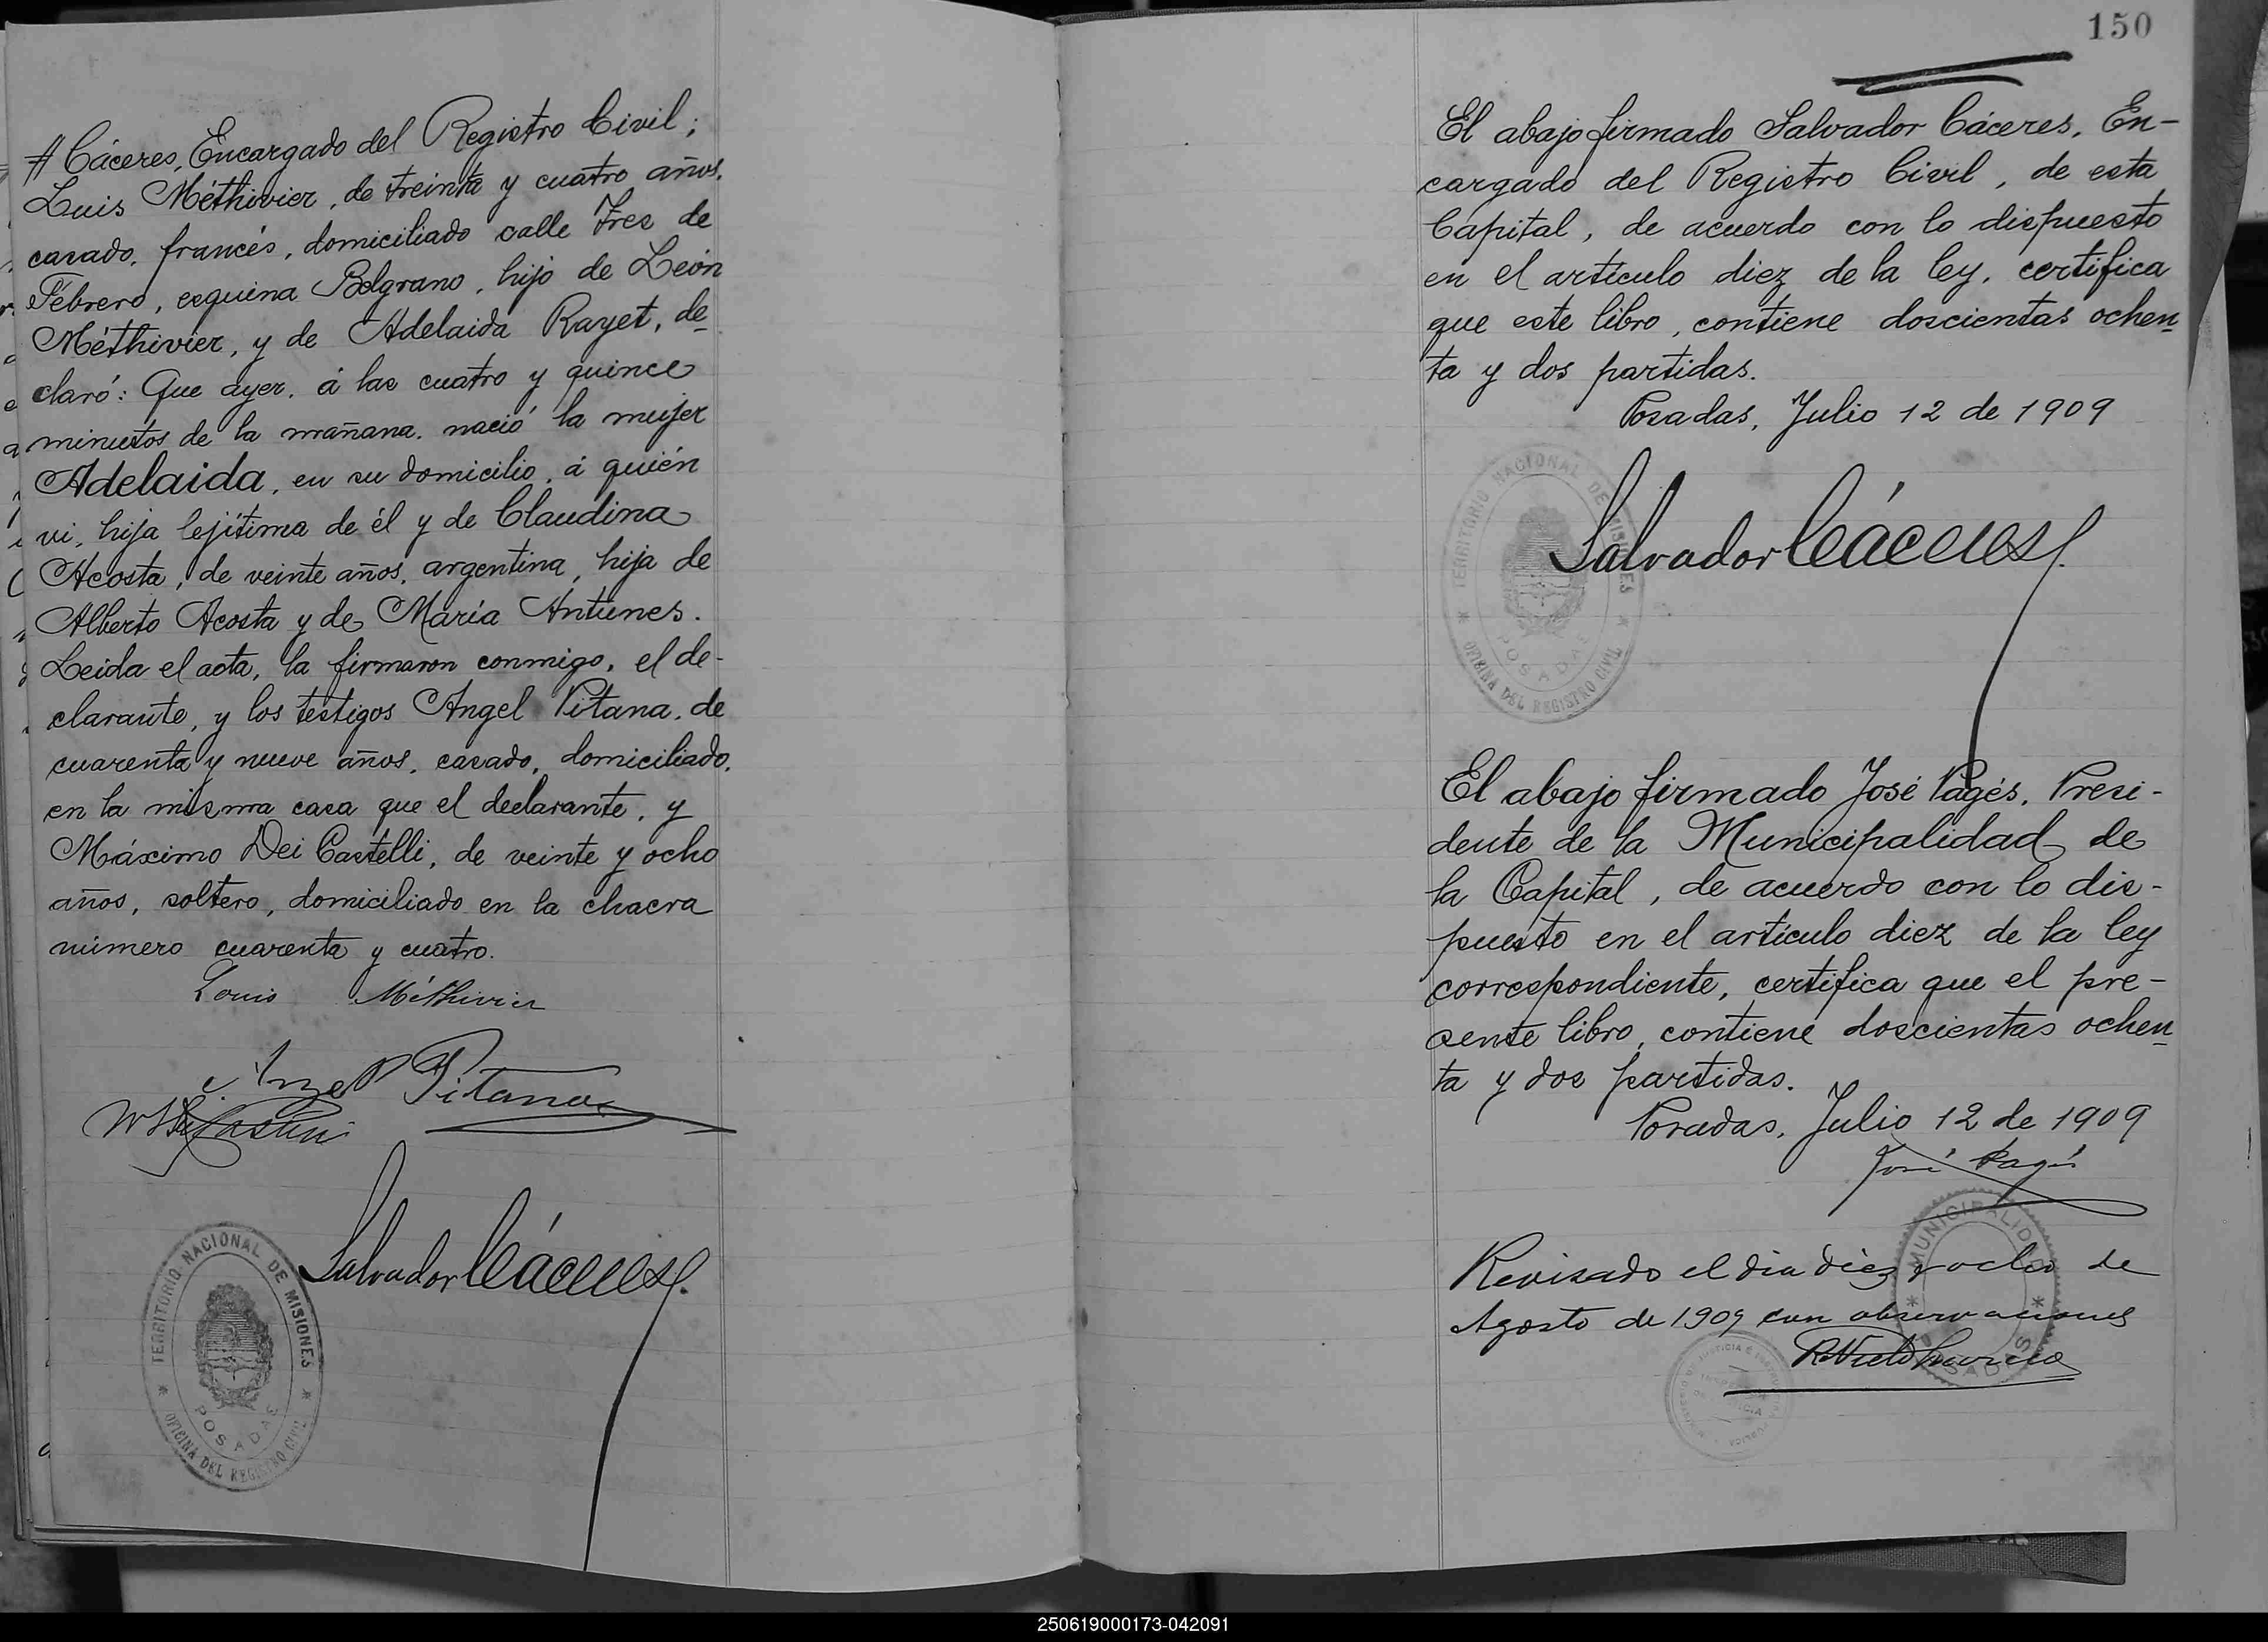 # Cáceres, Encargado del Registro Civil;
Luis Méthivier, de treinta y cuatro años,
casado, francés, domiciliado calle Tres de
Febrero, esquina Belgrano, hijo de León
Méthivier, y de Adelaida Rayet, de
claró: Que ayer, á las cuatro y quince
minutos de la mañana, nació la mujer
Adelaida, en su domicilio, á quién
vi, hija lejítima de él y de Claudina
Acosta, de veinte años, argentina, hija de
Alberto Acosta y de María Antunes.
Leida el acta, la firmaron conmigo, el de-
clarante, y los testigos Angel Pitana, de
cuarenta y nueve años, casado, domiciliado,
en la misma casa que el declarante, y
Máximo Dei Castelli, de veinte y ocho
años, soltero, domiciliado en la chacra
número cuarenta y cuatro.
Louis Méthivier
Angel Pitana
Salvador Cáceres
TERRITORIO NACIONAL DE MISIONES
POSADAS
OFICINA DEL REGISTRO CIVIL
150
El abajo firmado Salvador Cáceres, En-
cargado del Registro Civil, de esta
Capital, de acuerdo con lo dispuesto
en el artículo diez de la ley, certifica
que este libro, contiene doscientas ochen
ta y dos partidas.
Posadas, Julio 12 de 1909
Salvador Cáceres
TERRITORIO NACIONAL DE MISIONES
POSADAS
OFICINA DEL REGISTRO CIVIL
El abajo firmado José Pagés, Presi-
dente de la Municipalidad de
la Capital, de acuerdo con lo dis-
puesto en el artículo diez de la ley
correspondiente, certifica que el pre-
sente libro, contiene doscientas ochen
ta y dos partidas.
Posadas, Julio 12 de 1909
José Pagés
MUNICIPALIDAD
POSADAS
Revisado el dia diez y ocho de
Agosto de 1909 con observaciones
250619000173-042091